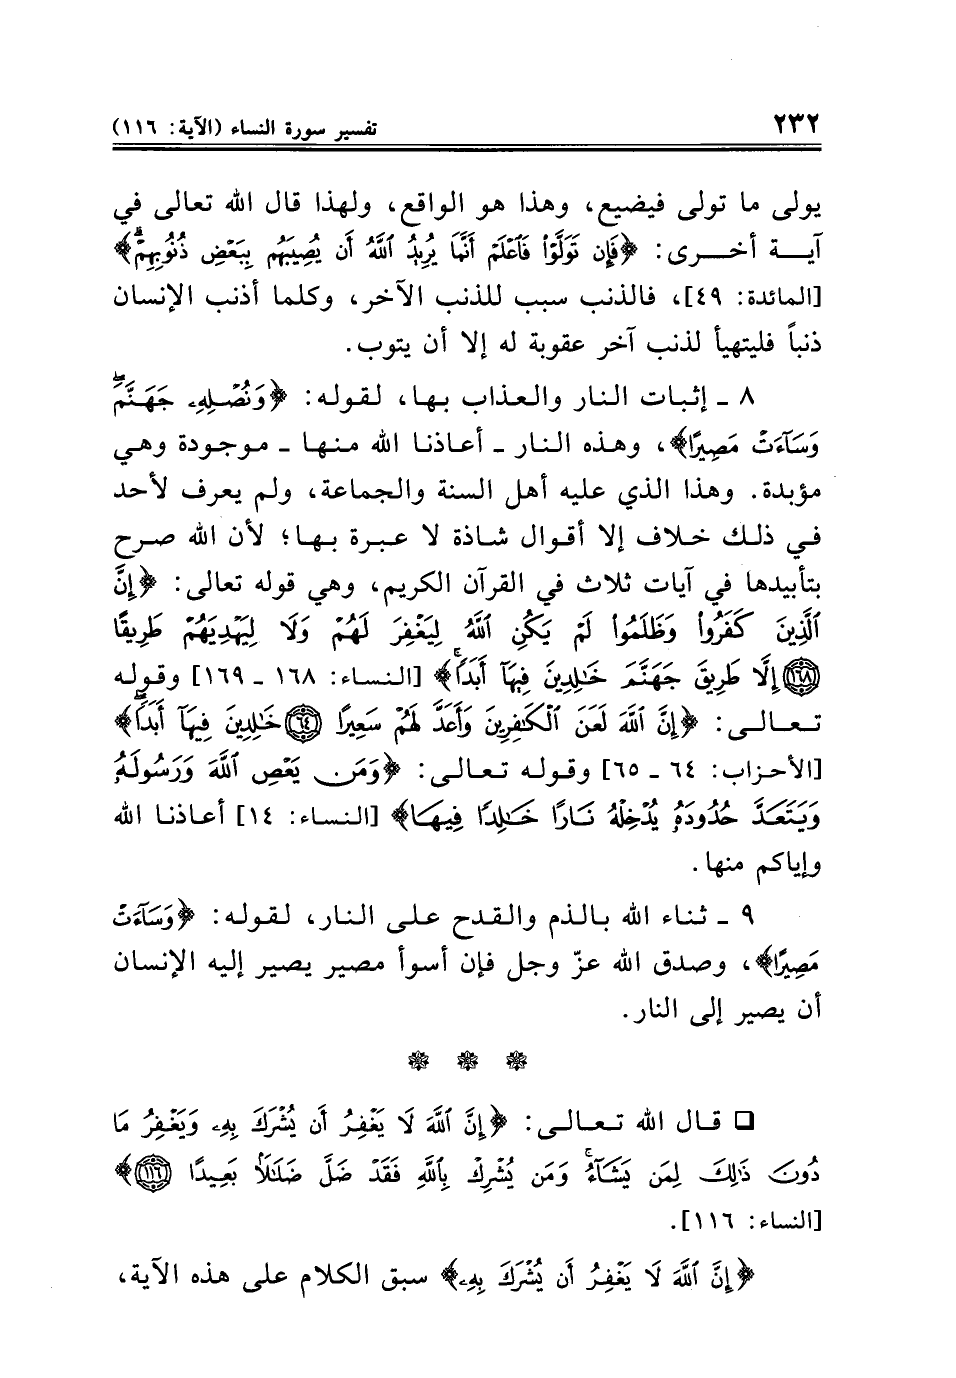 ٢٣٢ تفسير سورة النساء (الآية: ١١٦)
يولى ما تولى فيضيع، وهذا هو الواقع، ولهذا قال الله تعالى في
آيـــة أخـــرى: ﴿فَإِن تَوَلَّوْا۟ فَٱعْلَمْ أَنَّمَا يُرِيدُ ٱللَّهُ أَن يُصِيبَهُم بِبَعْضِ ذُنُوبِهِمْ ۗ﴾
[المائدة: ٤٩]، فالذنب سبب للذنب الآخر، وكلما أذنب الإنسان
ذنباً فليتهيأ لذنب آخر عقوبة له إلا أن يتوب.
٨ ـ إثبات النار والعذاب بها، لقوله: ﴿وَنُصْلِهِۦ جَهَنَّمَ ۖ
وَسَآءَتْ مَصِيرًا﴾، وهذه النار ـ أعاذنا الله منها ـ موجودة وهي
مؤبدة. وهذا الذي عليه أهل السنة والجماعة، ولم يعرف لأحد
في ذلك خلاف إلا أقوال شاذة لا عبرة بها؛ لأن الله صرح
بتأبيدها في آيات ثلاث في القرآن الكريم، وهي قوله تعالى: ﴿إِنَّ
ٱلَّذِينَ كَفَرُوا۟ وَظَلَمُوا۟ لَمْ يَكُنِ ٱللَّهُ لِيَغْفِرَ لَهُمْ وَلَا لِيَهْدِيَهُمْ طَرِيقًا
(١٦٨) إِلَّا طَرِيقَ جَهَنَّمَ خَـٰلِدِينَ فِيهَآ أَبَدًا ۚ﴾ [النساء: ١٦٨ ـ ١٦٩] وقوله
تعالى: ﴿إِنَّ ٱللَّهَ لَعَنَ ٱلْكَـٰفِرِينَ وَأَعَدَّ لَهُمْ سَعِيرًا (٦٤) خَـٰلِدِينَ فِيهَآ أَبَدًا ۖ﴾
[الأحزاب: ٦٤ ـ ٦٥] وقوله تعالى: ﴿وَمَن يَعْصِ ٱللَّهَ وَرَسُولَهُۥ
وَيَتَعَدَّ حُدُودَهُۥ يُدْخِلْهُ نَارًا خَـٰلِدًا فِيهَا﴾ [النساء: ١٤] أعاذنا الله
وإياكم منها.
٩ ـ ثناء الله بالذم والقدح على النار، لقوله: ﴿وَسَآءَتْ
مَصِيرًا﴾، وصدق الله عزّ وجل فإن أسوأ مصير يصير إليه الإنسان
أن يصير إلى النار.
❊ ❊ ❊
❑ قال الله تعالى: ﴿إِنَّ ٱللَّهَ لَا يَغْفِرُ أَن يُشْرَكَ بِهِۦ وَيَغْفِرُ مَا
دُونَ ذَٰلِكَ لِمَن يَشَآءُ ۚ وَمَن يُشْرِكْ بِٱللَّهِ فَقَدْ ضَلَّ ضَلَـٰلًۢا بَعِيدًا (١١٦)﴾
[النساء: ١١٦].
﴿إِنَّ ٱللَّهَ لَا يَغْفِرُ أَن يُشْرَكَ بِهِۦ﴾ سبق الكلام على هذه الآية،